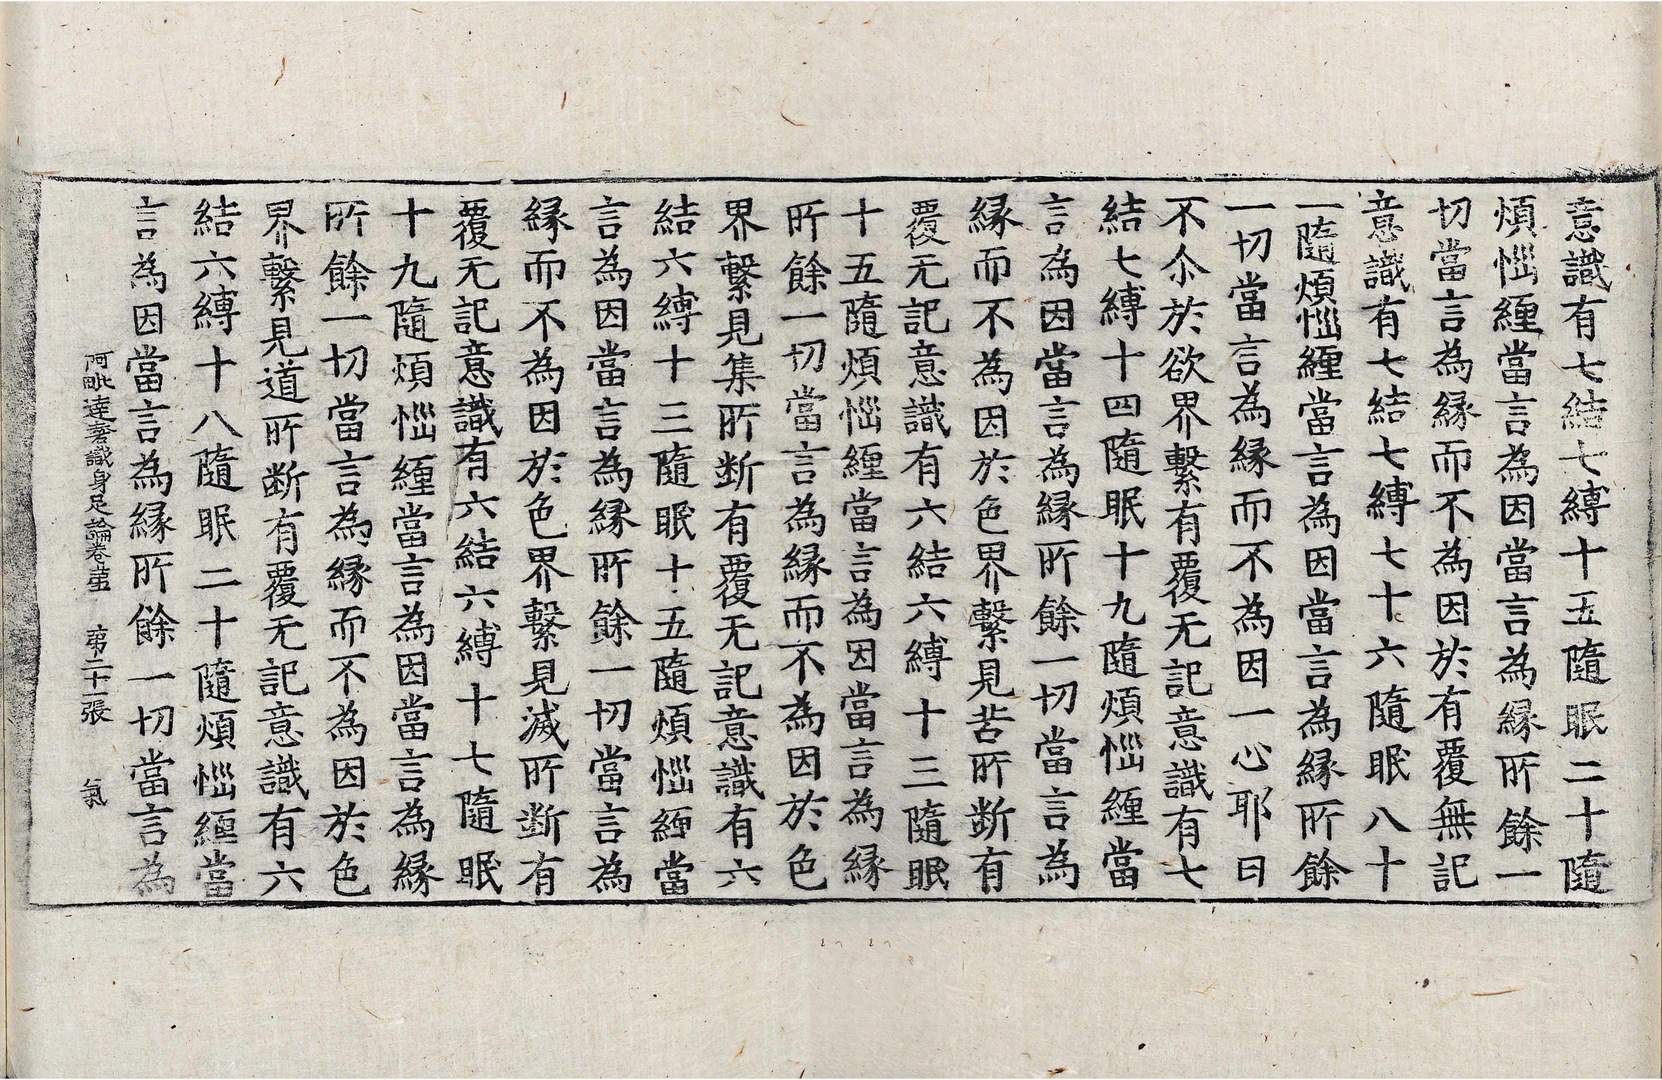 意識有七結七縛十五隨眠二十隨
煩惱纏當言為因當言為縁所餘一
切當言為縁而不為因於有覆無記
意識有七結七縛七十六隨眠八十
一隨煩惱纏當言為因當言為縁所餘
一切當言為縁而不為因一心耶曰
不尒於欲界繫有覆无記意識有七
結七縛十四隨眠十九隨煩惱纏當
言為因當言為縁所餘一切當言為
縁而不為因於色界繫見苦所断有
覆无記意識有六結六縛十三隨眠
十五隨煩惱纏當言為因當言為縁
所餘一切當言為縁而不為因於色
界繫見集所断有覆无記意識有六
結六縛十三隨眠十五隨煩惱纏當
言為因當言為縁所餘一切當言為
縁而不為因於色界繫見滅所斷有
覆无記意識有六結六縛十七隨眠
十九隨煩惱纏當言為因當言為縁
所餘一切當言為縁而不為因於色
界繫見道所断有覆无記意識有六
結六縛十八隨眠二十隨煩惱纏當
言為因當言為縁所餘一切當言為
阿毗達識身足論卷第 第二十一張 氣